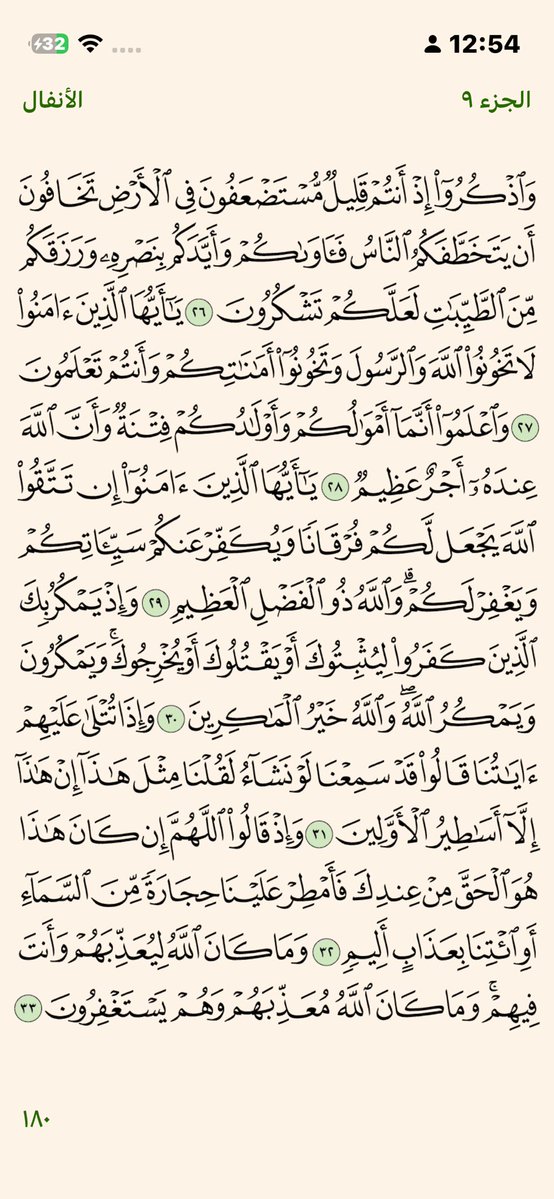 32 12:54
الجزء ٩ الأنفال
وَٱذۡكُرُوٓاْ إِذۡ أَنتُمۡ قَلِيلٞ مُّسۡتَضۡعَفُونَ فِي ٱلۡأَرۡضِ تَخَافُونَ
أَن يَتَخَطَّفَكُمُ ٱلنَّاسُ فَـَٔاوَىٰكُمۡ وَأَيَّدَكُم بِنَصۡرِهِۦ وَرَزَقَكُم
مِّنَ ٱلطَّيِّبَٰتِ لَعَلَّكُمۡ تَشۡكُرُونَ ٢٦ يَٰٓأَيُّهَا ٱلَّذِينَ ءَامَنُواْ
لَا تَخُونُواْ ٱللَّهَ وَٱلرَّسُولَ وَتَخُونُوٓاْ أَمَٰنَٰتِكُمۡ وَأَنتُمۡ تَعۡلَمُونَ
٢٧ وَٱعۡلَمُوٓاْ أَنَّمَآ أَمۡوَٰلُكُمۡ وَأَوۡلَٰدُكُمۡ فِتۡنَةٞ وَأَنَّ ٱللَّهَ
عِندَهُۥٓ أَجۡرٌ عَظِيمٞ ٢٨ يَٰٓأَيُّهَا ٱلَّذِينَ ءَامَنُوٓاْ إِن تَتَّقُواْ
ٱللَّهَ يَجۡعَل لَّكُمۡ فُرۡقَانٗا وَيُكَفِّرۡ عَنكُمۡ سَيِّـَٔاتِكُمۡ
وَيَغۡفِرۡ لَكُمۡۗ وَٱللَّهُ ذُو ٱلۡفَضۡلِ ٱلۡعَظِيمِ ٢٩ وَإِذۡ يَمۡكُرُ بِكَ
ٱلَّذِينَ كَفَرُواْ لِيُثۡبِتُوكَ أَوۡ يَقۡتُلُوكَ أَوۡ يُخۡرِجُوكَۚ وَيَمۡكُرُونَ
وَيَمۡكُرُ ٱللَّهُۖ وَٱللَّهُ خَيۡرُ ٱلۡمَٰكِرِينَ ٣٠ وَإِذَا تُتۡلَىٰ عَلَيۡهِمۡ
ءَايَٰتُنَا قَالُواْ قَدۡ سَمِعۡنَا لَوۡ نَشَآءُ لَقُلۡنَا مِثۡلَ هَٰذَآ إِنۡ هَٰذَآ
إِلَّآ أَسَٰطِيرُ ٱلۡأَوَّلِينَ ٣١ وَإِذۡ قَالُواْ ٱللَّهُمَّ إِن كَانَ هَٰذَا
هُوَ ٱلۡحَقَّ مِنۡ عِندِكَ فَأَمۡطِرۡ عَلَيۡنَا حِجَارَةٗ مِّنَ ٱلسَّمَآءِ
أَوِ ٱئۡتِنَا بِعَذَابٍ أَلِيمٖ ٣٢ وَمَا كَانَ ٱللَّهُ لِيُعَذِّبَهُمۡ وَأَنتَ
فِيهِمۡۚ وَمَا كَانَ ٱللَّهُ مُعَذِّبَهُمۡ وَهُمۡ يَسۡتَغۡفِرُونَ ٣٣
١٨٠